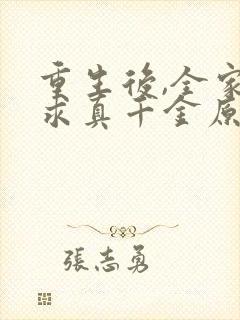 重生後,全家
求真千金原
張志勇